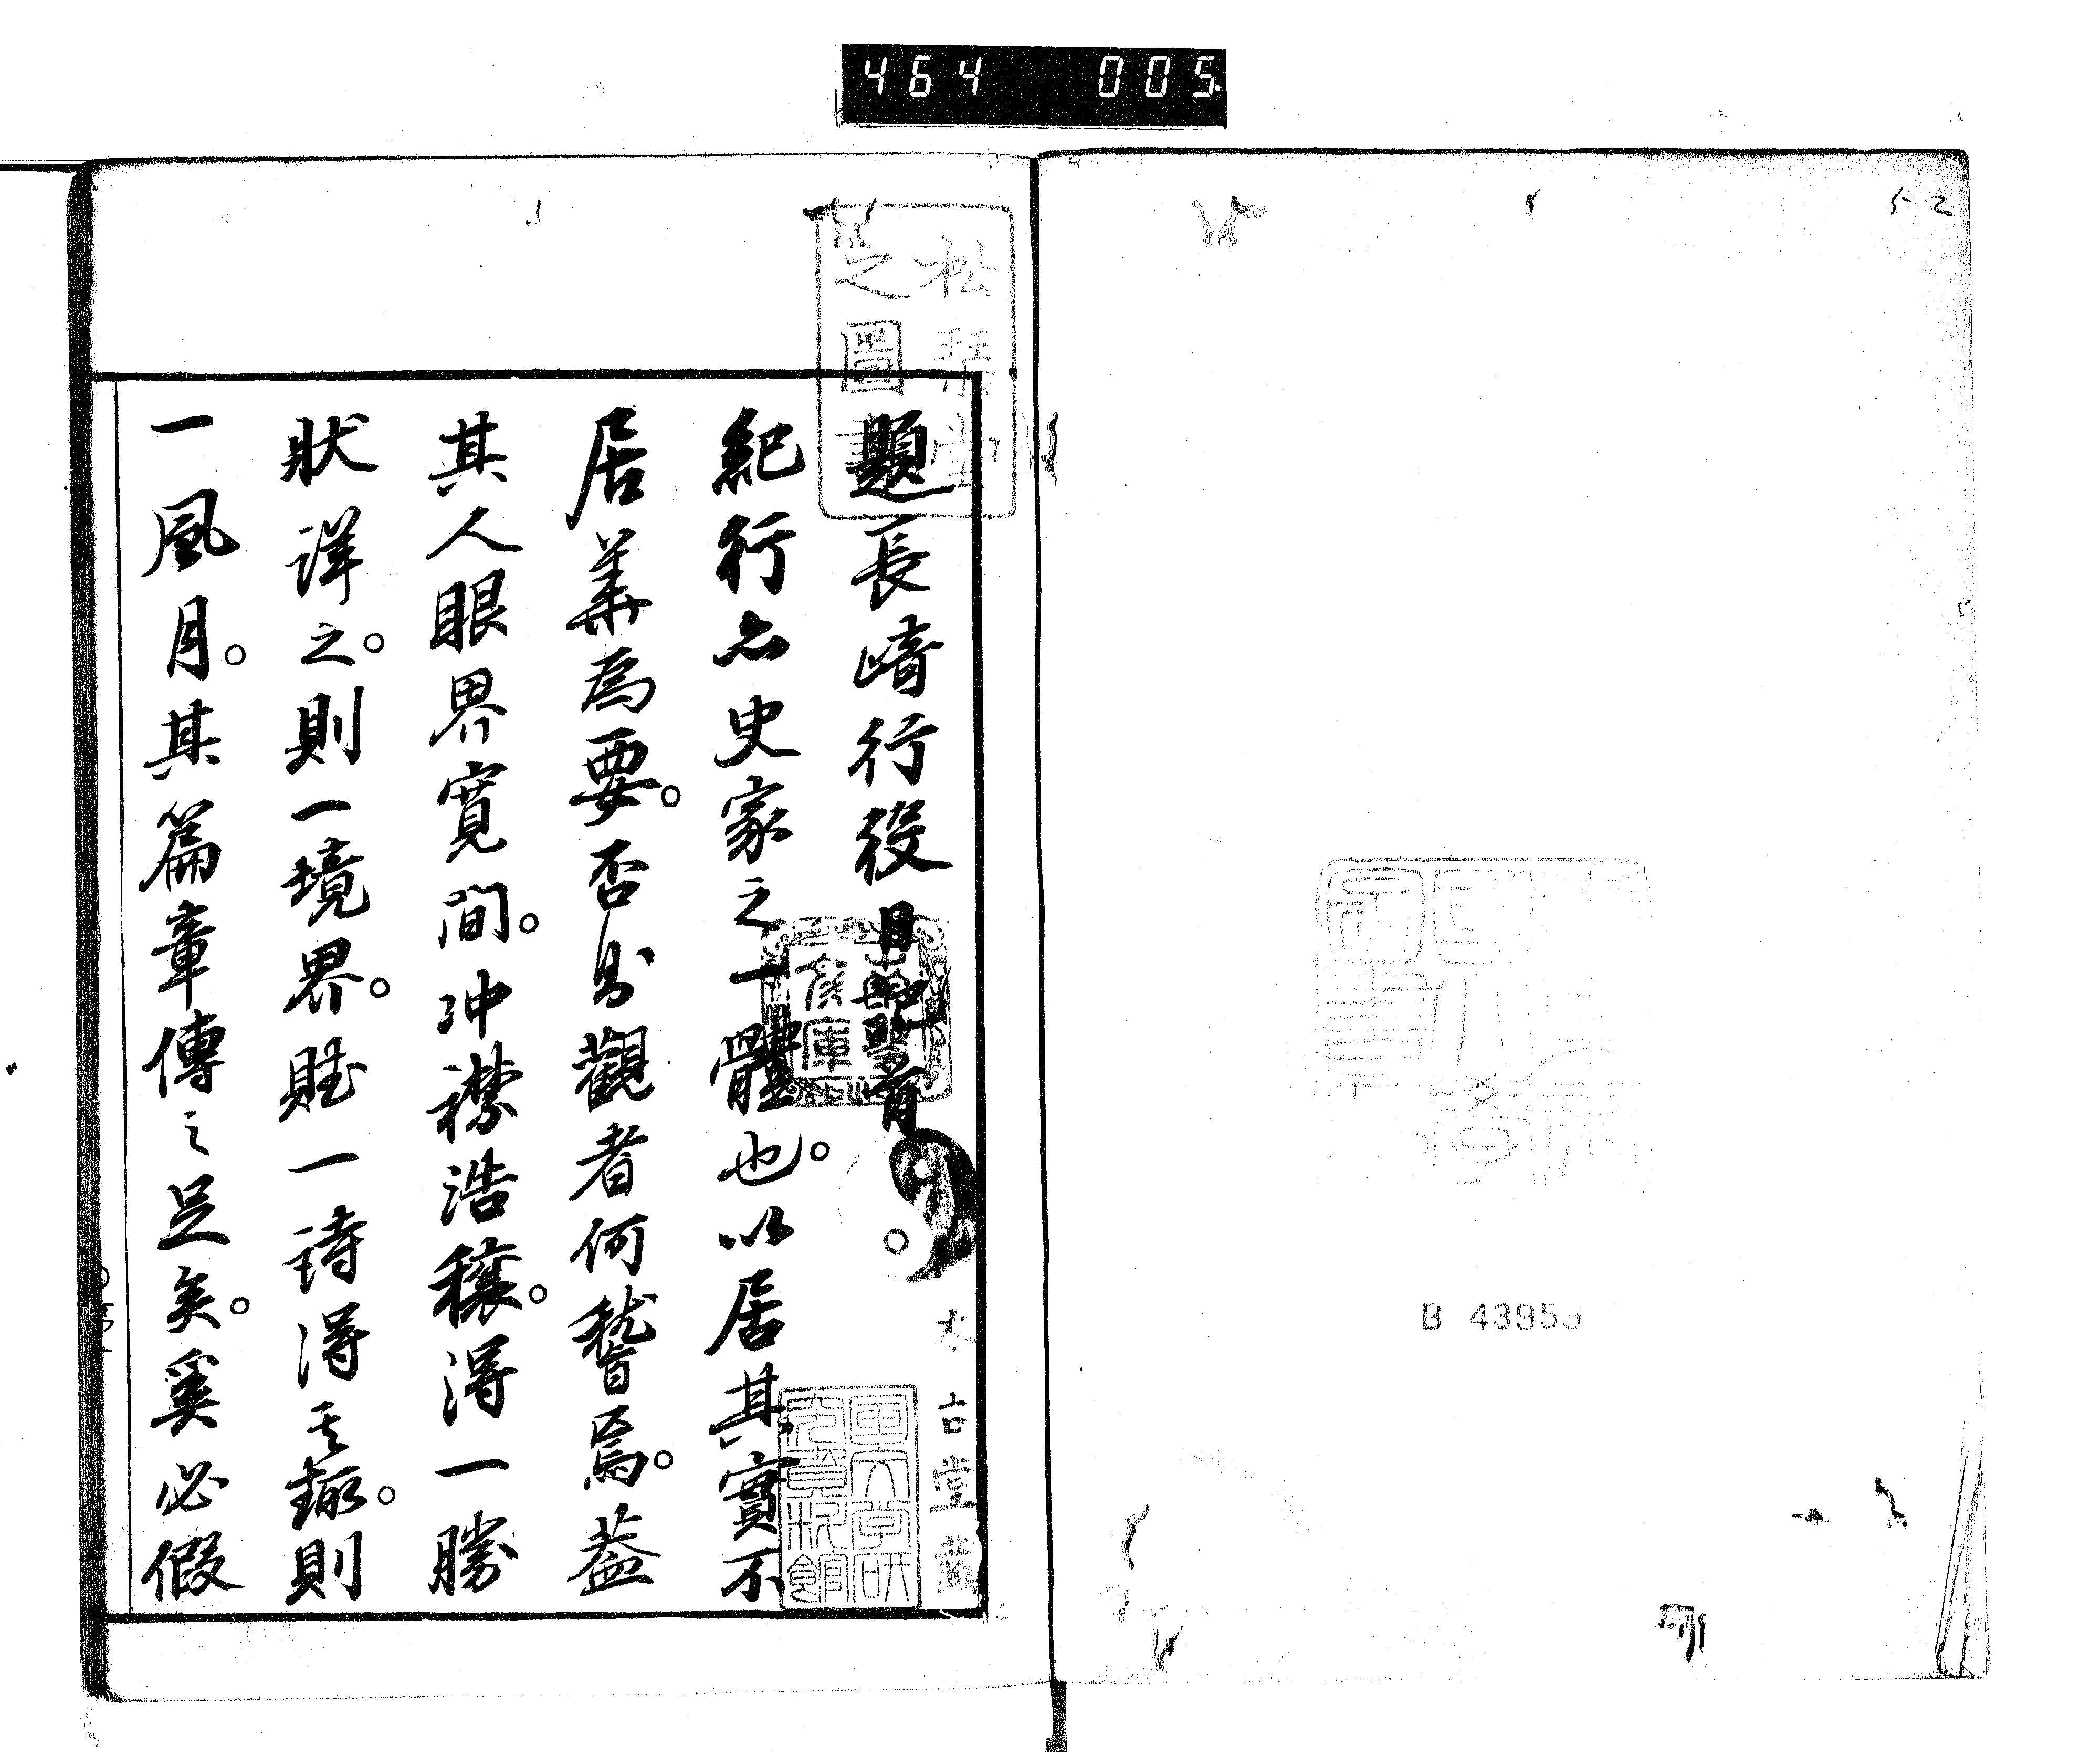 464 005
52
B 43953
松琴堂
之圖書
題長崎行役日記首
紀行亦史家之一體也。以居其實不
居華爲要。否則觀者何稽焉。蓋
其人眼界寬間。冲襟浩穰。得一勝
狀詳之。則一境界。賦一詩得其趣。則
一風月。其篇章傳之足矣。奚必假
古堂藏
國文学研
究資料館